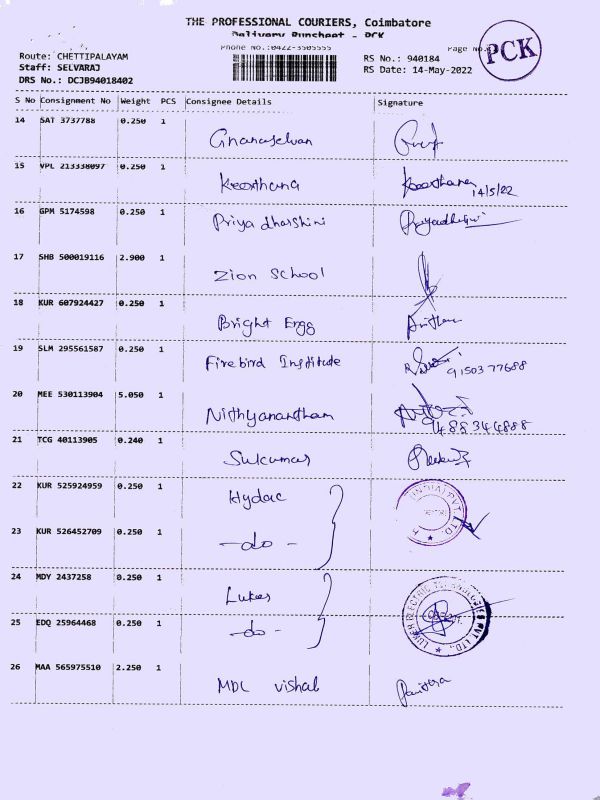 THE PROFESSIONAL COURIERS, Coimbatore
Delivery Runsheet - PCK
Phone No.:0422-3505555
Page No.
PCK
Route: CHETTIPALAYAM
RS No.: 940184
Staff: SELVARAJ
RS Date: 14-May-2022
DRS No.: DCJB94018402
S No Consignment No Weight PCS Consignee Details Signature
14 SAT 3737788 0.250 1 Gnanaselvan
15 VPL 213338097 0.250 1 Keerthana Keerthana 14/5/22
16 GPM 5174598 0.250 1 Priya dharshini
17 SHB 500019116 2.900 1 Zion School
18 KUR 607924427 0.250 1 Bright Engg
19 SLM 295561587 0.250 1 Firebird Institute 9150377688
20 MEE 530113904 5.050 1 Nithyanantham 9488344888
21 TCG 40113905 0.240 1 Sukumar
22 KUR 525924959 0.250 1 Hydac
23 KUR 526452709 0.250 1 -do-
24 MDY 2437258 0.250 1 Luker
25 EDQ 25964468 0.250 1 -do-
LUKER ELECTRIC TECHNOLOGIES PVT LTD.,
26 MAA 565975510 2.250 1 MDL vishal